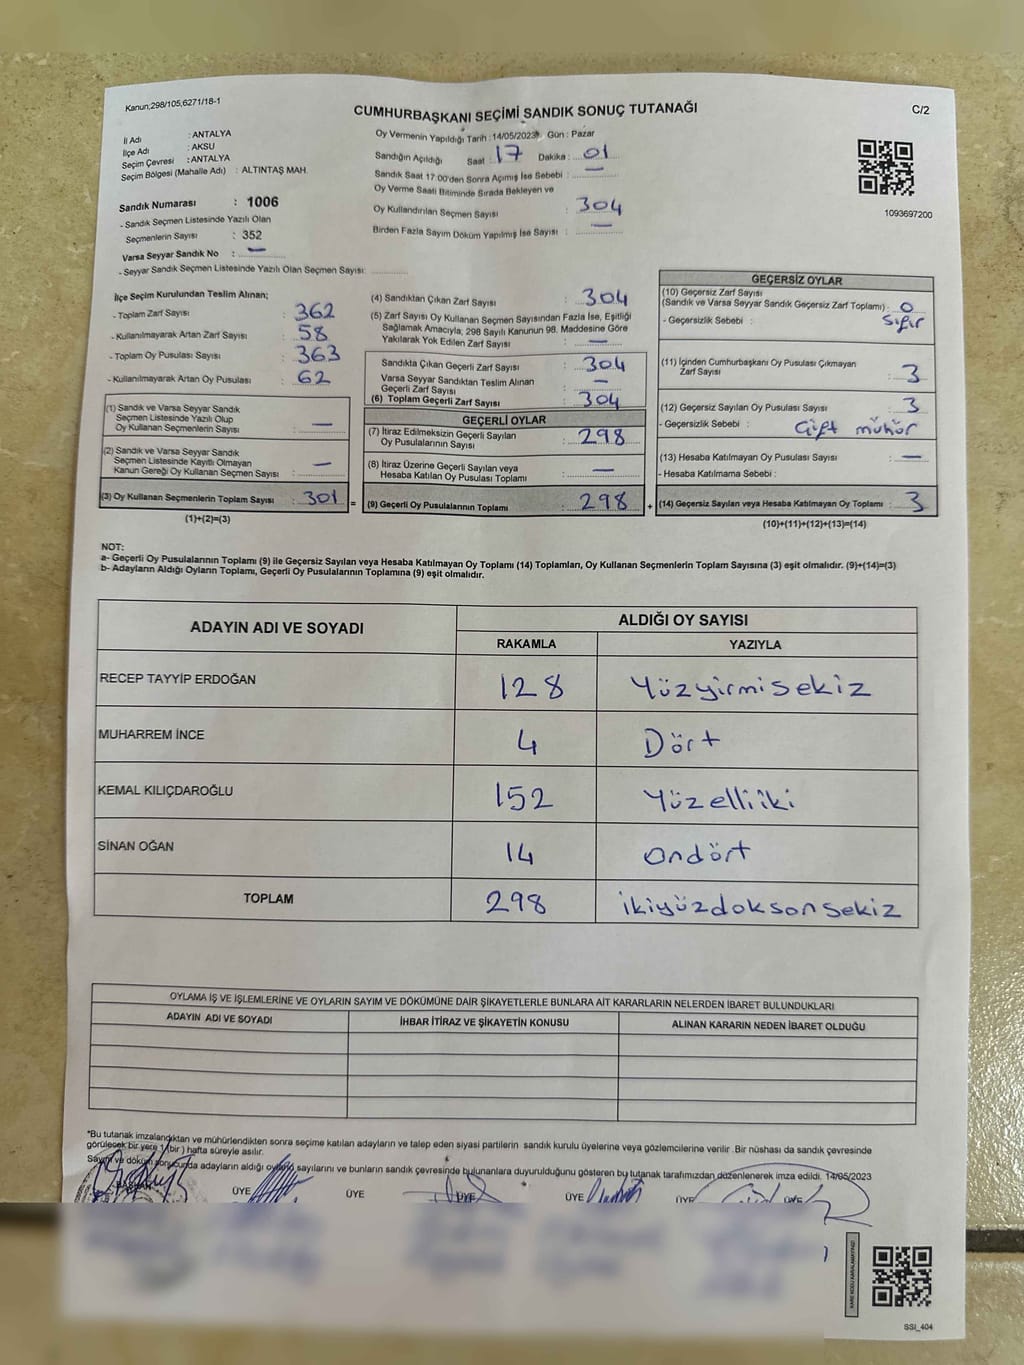 Kanun;298/105,6271/18-1
CUMHURBAŞKANI SEÇİMİ SANDIK SONUÇ TUTANAĞI
C/2
İl Adı : ANTALYA
İlçe Adı : AKSU
Seçim Çevresi : ANTALYA
Seçim Bölgesi (Mahalle Adı) : ALTINTAŞ MAH.
Oy Vermenin Yapıldığı Tarih : 14/05/2023 Gün : Pazar
Sandığın Açıldığı Saat : 17 Dakika : 01
Sandık Saat 17:00'den Sonra Açımış İse Sebebi : —
Oy Verme Saati Bitiminde Sırada Bekleyen ve
Oy Kullandırılan Seçmen Sayısı : 304
Birden Fazla Sayım Döküm Yapılmış İse Sayısı : —
1093697200
Sandık Numarası : 1006
- Sandık Seçmen Listesinde Yazılı Olan
Seçmenlerin Sayısı : 352
Varsa Seyyar Sandık No : —
- Seyyar Sandık Seçmen Listesinde Yazılı Olan Seçmen Sayısı:
İlçe Seçim Kurulundan Teslim Alınan;
- Toplam Zarf Sayısı : 362
- Kullanılmayarak Artan Zarf Sayısı : 58
- Toplam Oy Pusulası Sayısı : 363
- Kullanılmayarak Artan Oy Pusulası : 62
(1) Sandık ve Varsa Seyyar Sandık
Seçmen Listesinde Yazılı Olup
Oy Kullanan Seçmenlerin Sayısı : —
(2) Sandık ve Varsa Seyyar Sandık
Seçmen Listesinde Kayıtlı Olmayan
Kanun Gereği Oy Kullanan Seçmen Sayısı : —
(3) Oy Kullanan Seçmenlerin Toplam Sayısı : 301 =
(1)+(2)=(3)
(4) Sandıktan Çıkan Zarf Sayısı : 304
(5) Zarf Sayısı Oy Kullanan Seçmen Sayısından Fazla İse, Eşitliği
Sağlamak Amacıyla, 298 Sayılı Kanunun 98. Maddesine Göre
Yakılarak Yok Edilen Zarf Sayısı : —
Sandıkta Çıkan Geçerli Zarf Sayısı : 304
Varsa Seyyar Sandıktan Teslim Alınan
Geçerli Zarf Sayısı : —
(6) Toplam Geçerli Zarf Sayısı : 304
GEÇERLİ OYLAR
(7) İtiraz Edilmeksizin Geçerli Sayılan
Oy Pusulasının Sayısı : 298
(8) İtiraz Üzerine Geçerli Sayılan veya
Hesaba Katılan Oy Pusulası Toplamı : —
(9) Geçerli Oy Pusulalarının Toplamı : 298 +
GEÇERSİZ OYLAR
(10) Geçersiz Zarf Sayısı
(Sandık ve Varsa Seyyar Sandık Geçersiz Zarf Toplamı) : 0
- Geçersizlik Sebebi : Sıfır
(11) İçinden Cumhurbaşkanı Oy Pusulası Çıkmayan
Zarf Sayısı : 3
(12) Geçersiz Sayılan Oy Pusulası Sayısı : 3
- Geçersizlik Sebebi : Çift mühür
(13) Hesaba Katılmayan Oy Pusulası Sayısı : —
- Hesaba Katılmama Sebebi :
(14) Geçersiz Sayılan veya Hesaba Katılmayan Oy Toplamı : 3
(10)+(11)+(12)+(13)=(14)
NOT:
a- Geçerli Oy Pusulalarının Toplamı (9) ile Geçersiz Sayılan veya Hesaba Katılmayan Oy Toplamı (14) Toplamları, Oy Kullanan Seçmenlerin Toplam Sayısına (3) eşit olmalıdır. (9)+(14)=(3)
b- Adayların Aldığı Oyların Toplamı, Geçerli Oy Pusulalarının Toplamına (9) eşit olmalıdır.
ADAYIN ADI VE SOYADI
ALDIĞI OY SAYISI
RAKAMLA YAZIYLA
RECEP TAYYİP ERDOĞAN 128 Yüzyirmisekiz
MUHARREM İNCE 4 Dört
KEMAL KILIÇDAROĞLU 152 Yüzelliiki
SİNAN OĞAN 14 ondört
TOPLAM 298 ikiyüzdoksonsekiz
OYLAMA İŞ VE İŞLEMLERİNE VE OYLARIN SAYIM VE DÖKÜMÜNE DAİR ŞİKAYETLERLE BUNLARA AİT KARARLARIN NELERDEN İBARET BULUNDUKLARI
ADAYIN ADI VE SOYADI İHBAR İTİRAZ VE ŞİKAYETİN KONUSU ALINAN KARARIN NEDEN İBARET OLDUĞU
*Bu tutanak imzalandıktan ve mühürlendikten sonra seçime katılan adayların ve talep eden siyasi partilerin sandık kurulu üyelerine veya gözlemcilerine verilir .Bir nüshası da sandık çevresinde
görülecek bir yere 1 (bir ) hafta süreyle asılır.
Sayım ve döküm sonucunda adayların aldığı oyların sayılarını ve bunların sandık çevresinde bulunanlara duyurulduğunu gösteren bu tutanak tarafımızdan düzenlenerek imza edildi. 14/05/2023
BAŞKAN ÜYE ÜYE ÜYE ÜYE ÜYE ÜYE
KARE KODU KARALAMAYINIZ!
SSI_404